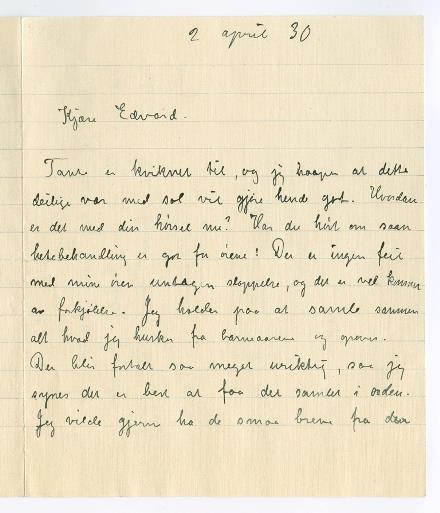 2 april 30
Kjære Edvard.
Tante er kviknet til, og jeg haaper at dette
deilige var med sol vil gjøre hende got. Hvordan
er det med din hørsel nu? Har du hørt om saan
hetebehandling er got for ørene! Der er ingen feil
med mine ører untagen sløppelse, og det er vel kommet
av forkjølelse. Jeg holder paa at samle sammen
alt hvad jeg husker fra barneaarene og opover.
Der blir fortalt saa meget uriktig, saa jeg
synes det er best at faa det samlet i orden.
Jeg vilde gjerne ha de smaa brevene fra